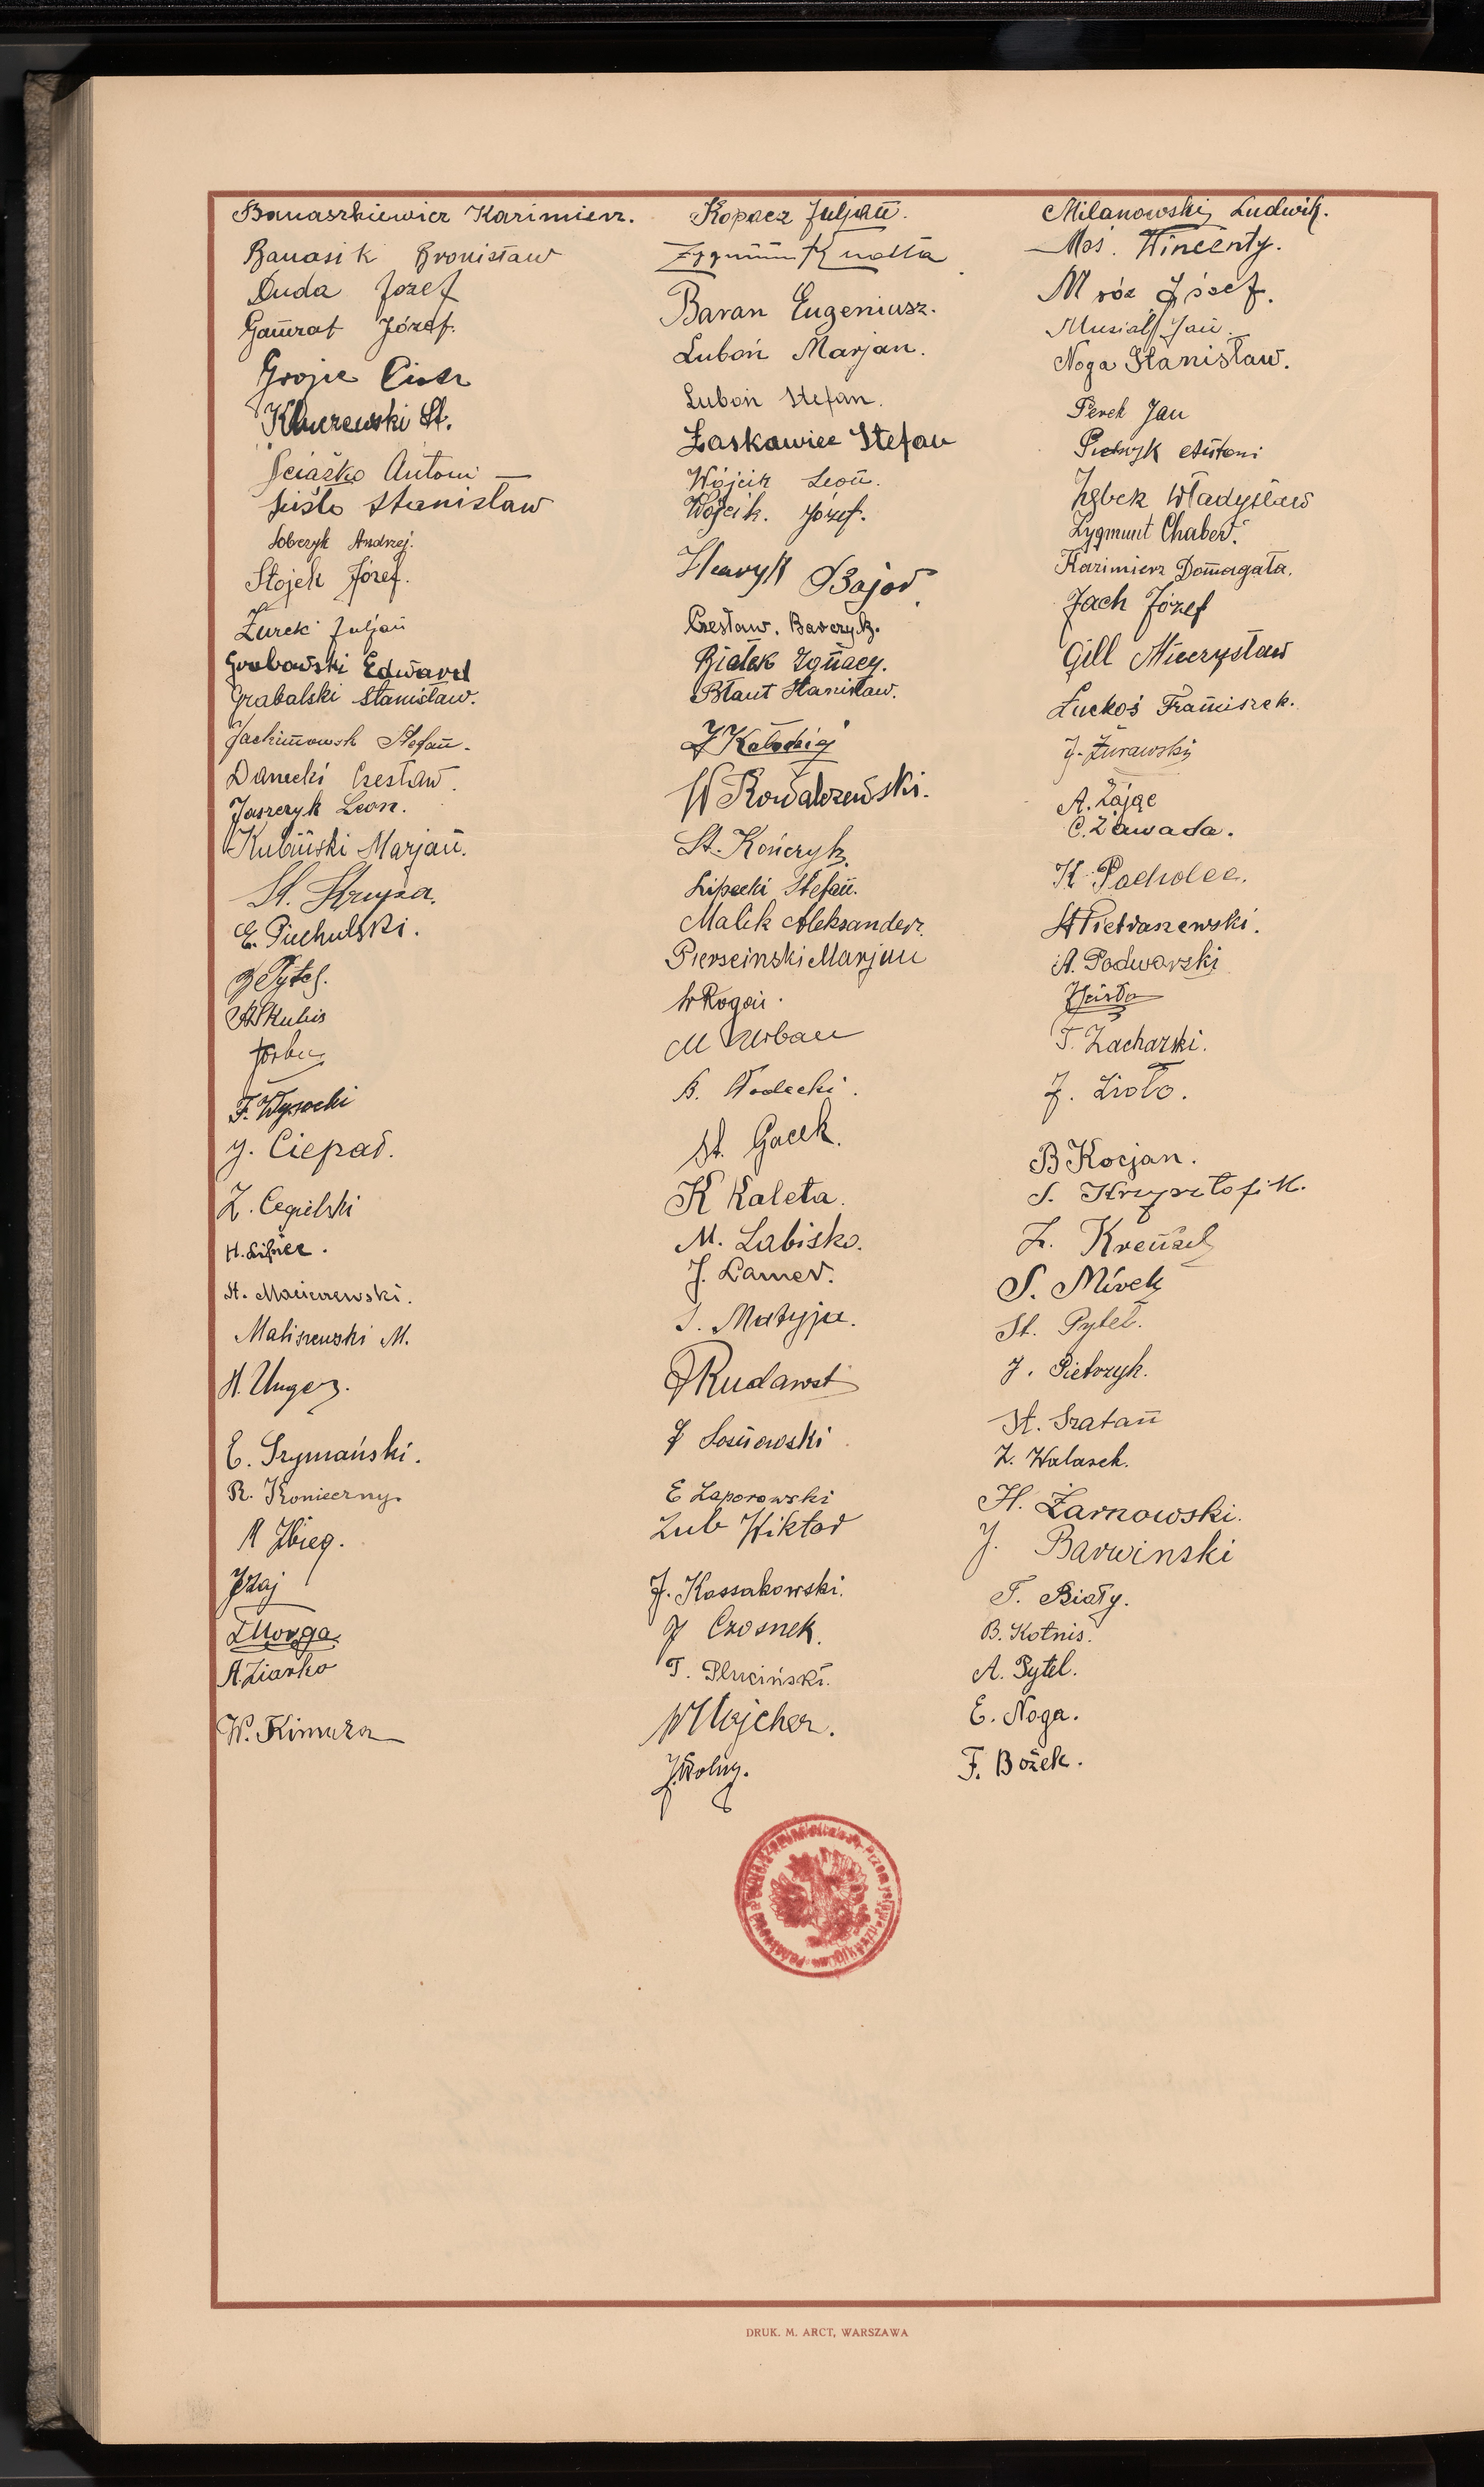 Banaszkiewicz Kazimierz.
Banasik Bronisław
Duda Józef
Gamrat Józef.
Grojec Piotr
St.
Ściążko Antoni
Stanisław
Sobczyk Andrzej.
Stojek Józef.
Żurek Juljan
Grabowski Edward
Grabalski Stanisław.
Jachimowsk Stefan.
Danecki Czesław.
Jaszczyk Leon.
Kubiński Marjan.
St. Struzsa.
E. Piechulski.
Pytel.
St Kubis
F. Wysocki
J. Ciepał.
Z. Cegielski
H. Lipiec.
St. Macierzewski.
Maliszewski M.
H. Unger.
E. Szymański.
R. Konieczny.
R Zbieg.
J Zaj
Morga
A. Ziarko
W. Kimura
Kopacz Juljan.
Zygmunt Knotta
Baran Eugeniusz.
Luboń Marjan.
Luboń Stefan.
Łaskawiec Stefan
Wójcik Leon.
Wójcik. Józef.
Henryk Bajor
Czesław. Barczyk.
Białek Ignacy.
Błaut Stanisław.
W Kowalczewski.
St. Kończyk.
Lipecki Stefan.
Malik Aleksander.
Pierscinski Marjan
W Rogoń.
M Urban
B. Wodecki.
St. Gacek.
K Kaleta.
M. Labisko.
J. Lamer.
J. Matyja.
Rudawst
J Sosnowski
E Zaporowski
Zub Wiktor
J. Kossakowski.
J Czosnek.
T. Pluciński.
W Majcher.
J. Wolny.
Milanowski Ludwik.
Moś. Wincenty.
Mróz Józef.
Musiał Jan.
Noga Stanisław.
Perek Jan
Pietrzyk Antoni
Ząbek Władysław
Zygmunt Chaber.
Kazimierz Domagała.
Jach Józef
Gill Mieczysław
Luckoś Franciszek.
J. Żurawski
A. Zając
C. Zawada.
K. Pacholec.
St Pietraszewski.
A. Podworski
T. Zacharski.
J. Zioło.
B Kocjan.
S. Krzysztofik.
Z. Krenzel
S. Mirek
St. Pytel.
J. Pietrzyk.
St. Szatan
Z. Walasek.
H. Żarnowski.
J. Barwinski
T. Biały.
B. Kotnis.
A. Pytel.
E. Noga.
F. Bożek.
DRUK. M. ARCT, WARSZAWA